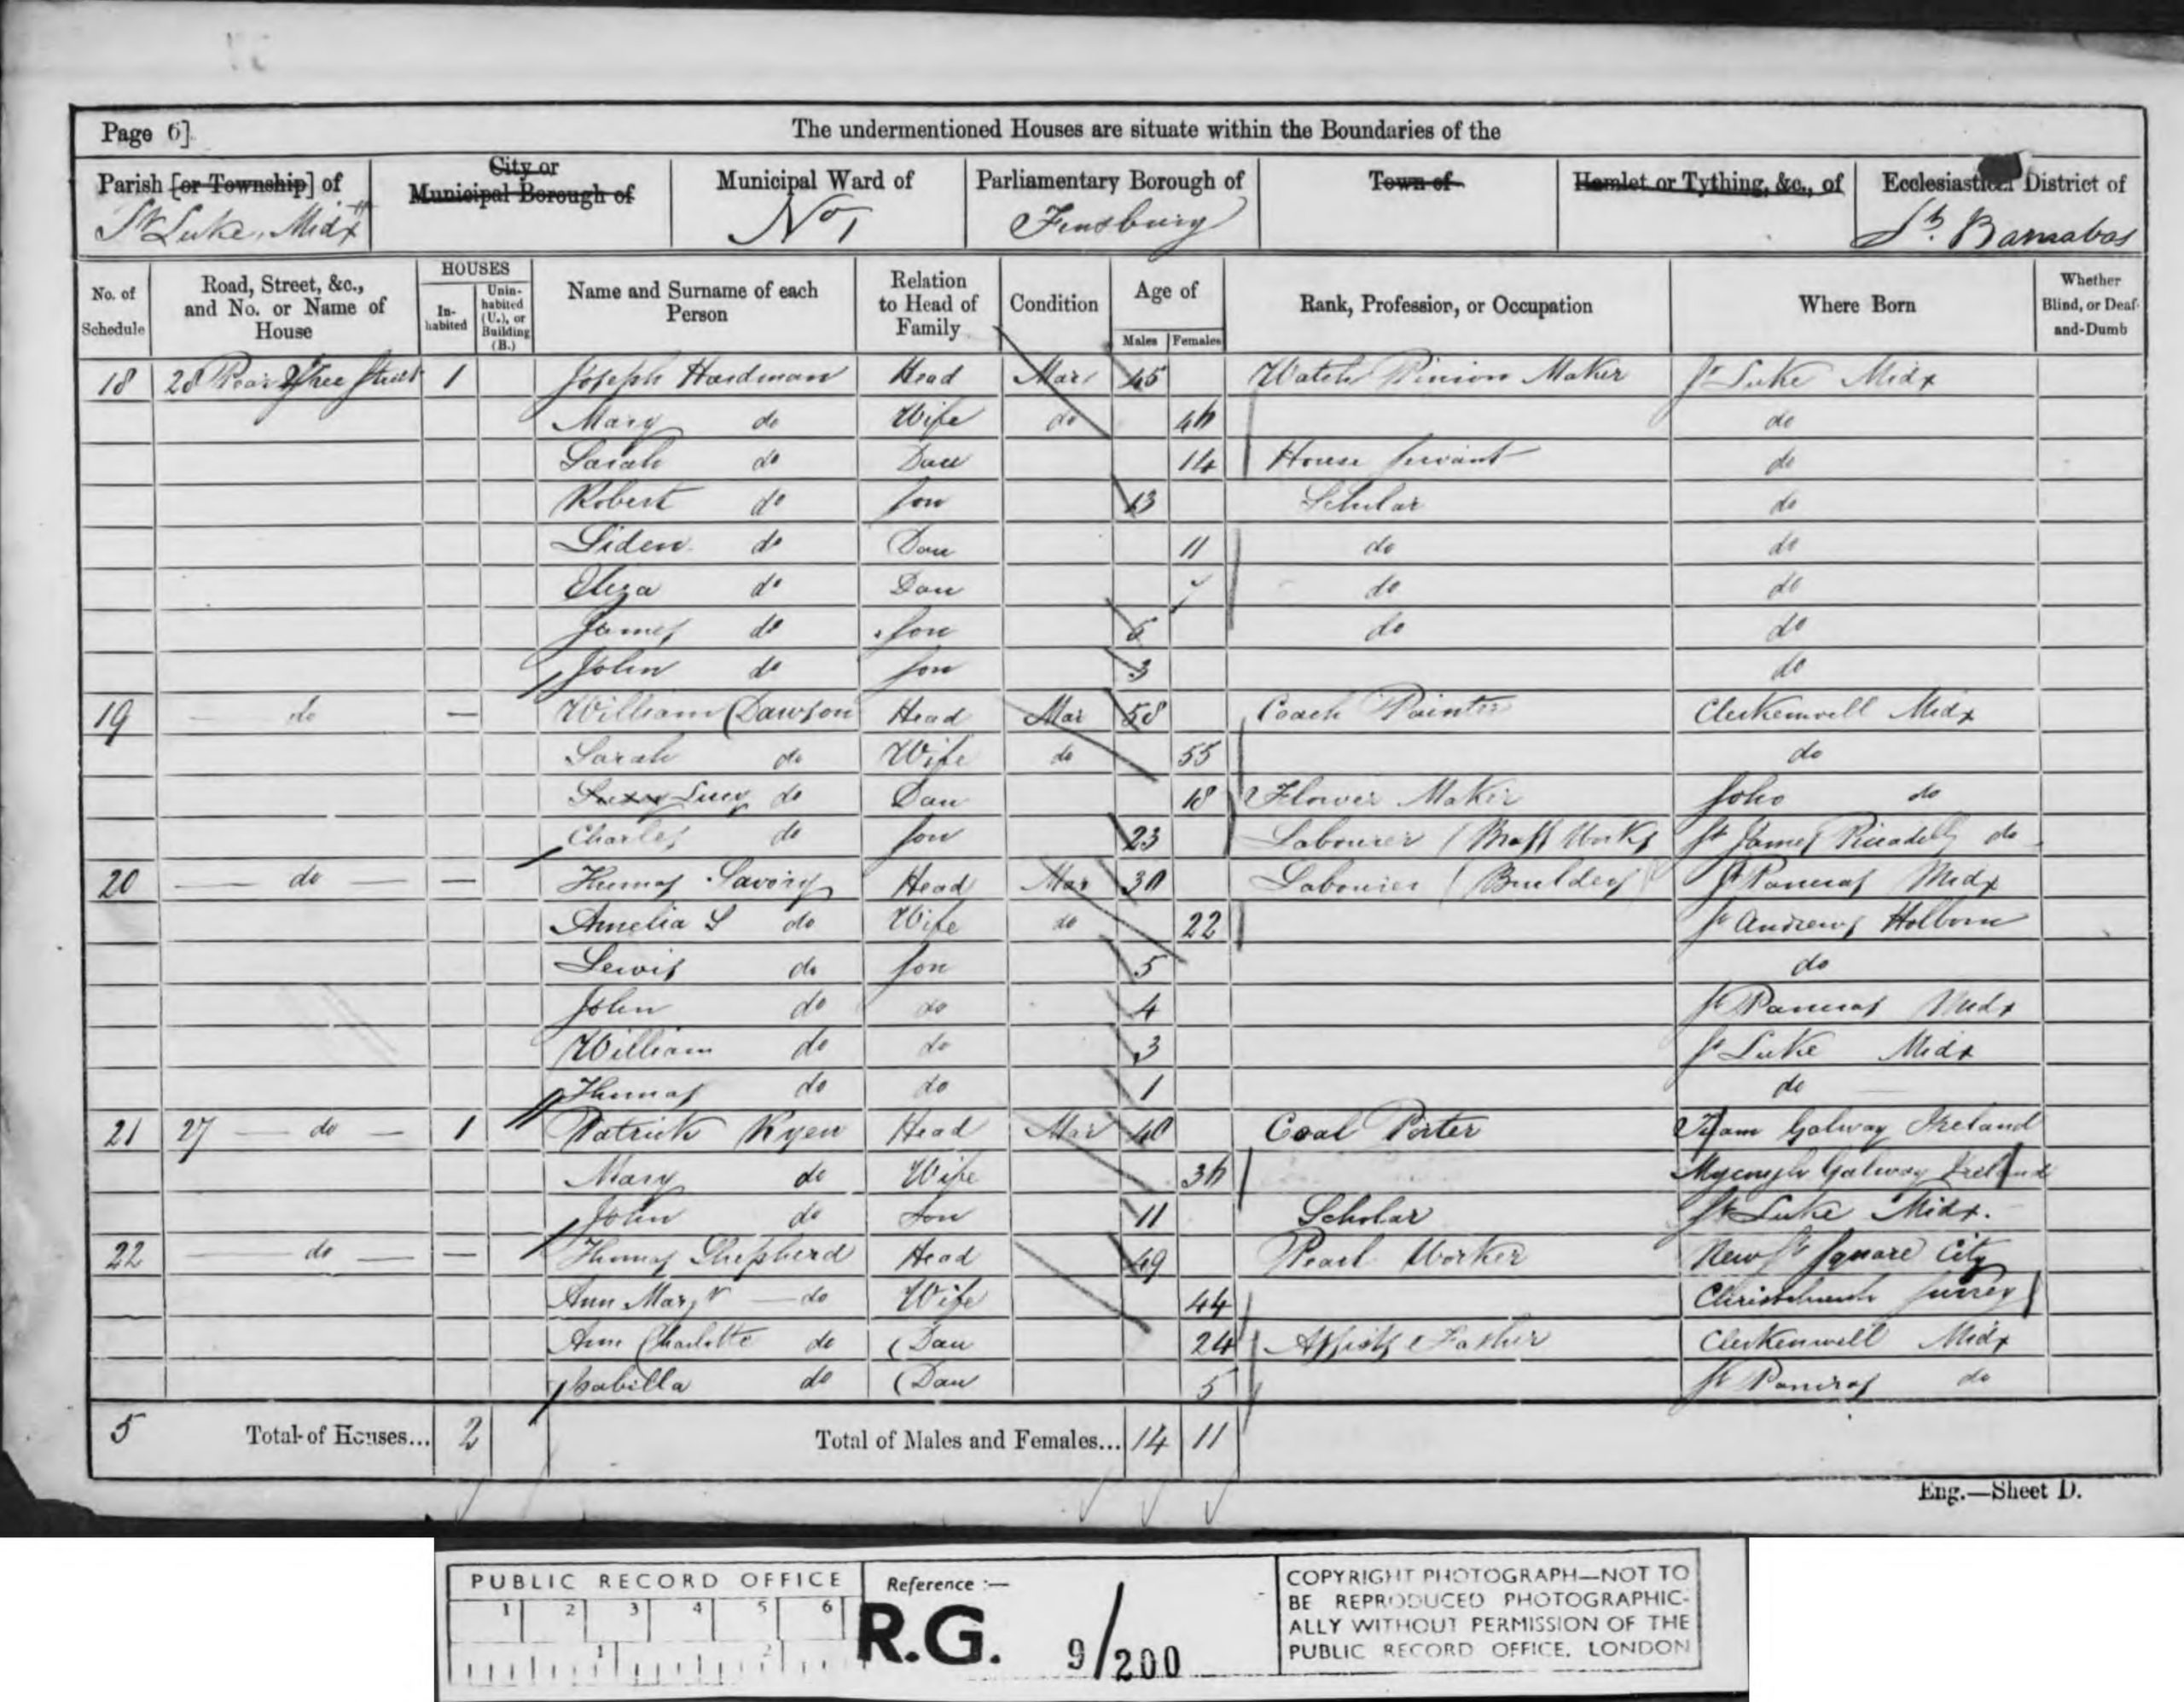 Page 6]
The undermentioned Houses are situate within the Boundaries of the
Parish [or Township] of St Luke, Midx
City or Municipal Borough of
Municipal Ward of No 1
Parliamentary Borough of Finsbury
Town of
Hamlet or Tything, &c., of
Ecclesiastical District of St. Barnabas
No. of Schedule
Road, Street, &c., and No. or Name of House
HOUSES
In-habited
Unin-habited (U.), or Building (B.)
Name and Surname of each Person
Relation to Head of Family
Condition
Age of
Males
Females
Rank, Profession, or Occupation
Where Born
Whether Blind, or Deaf-and-Dumb
18 28 Pear Tree Street 1 Joseph Hardman Head Mar 45 Watch Pinion Maker St Luke Midx
Mary do Wife do do
Sarah do Dau 14 House Servant do
Robert do Son 13 Scholar do
do Dau 11 do do
Eliza do Dau do do
James do Son 5 do do
John do Son 3 do
19 do — William Dawson Head Mar 58 Coach Painter Clerkenwell Midx
Sarah do Wife do 55 do
Lucy do Dau 18 Flower Maker Soho do
Charles do Son 23 Labourer (Brass Works St James Piccadilly do
20 — do — — Thomas Savory Head Mar 30 Labourer (Builders) St Pancras Midx
Amelia S do Wife do 22 St Andrews Holborn
Lewis do Son 5 do
John do do 4 St Pancras Midx
William do do 3 St Luke Midx
Thomas do do 1 do
21 27 — do — 1 Patrick Ryen Head Mar 40 Coal Porter Galway Ireland
Mary do Wife Galway Ireland
John do Son 11 Scholar St Luke Midx.
22 — do — — Thomas Shepherd Head 49 Pearl Worker New St Square City
Ann Mary — do Wife 44 Christchurch Surrey
Ann Charlotte do Dau 24 Assists Father Clerkenwell Midx
Isabilla do Dau 5 St Pancras do
5 Total of Houses... 2 Total of Males and Females... 14 11
Eng.—Sheet D.
PUBLIC RECORD OFFICE
1 2 3 4 5 6
1 2
Reference :—
R.G. 9/200
COPYRIGHT PHOTOGRAPH—NOT TO
BE REPRODUCED PHOTOGRAPHIC-
ALLY WITHOUT PERMISSION OF THE
PUBLIC RECORD OFFICE, LONDON